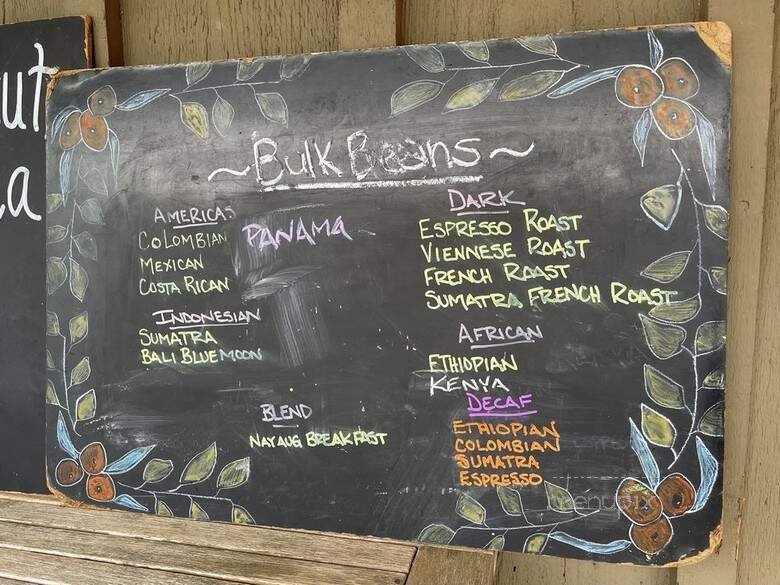 ut
a
~Bulk Beans~
AMERICAS
COLOMBIAN
MEXICAN
COSTA RICAN
PANAMA
INDONESIAN
SUMATRA
BALI BLUE MOON
BLEND
NAYAUG BREAKFAST
DARK
ESPRESSO ROAST
VIENNESE ROAST
FRENCH ROAST
SUMATRA FRENCH ROAST
AFRICAN
ETHIOPIAN
KENYA
DECAF
ETHIOPIAN
COLOMBIAN
SUMATRA
ESPRESSO
menupix